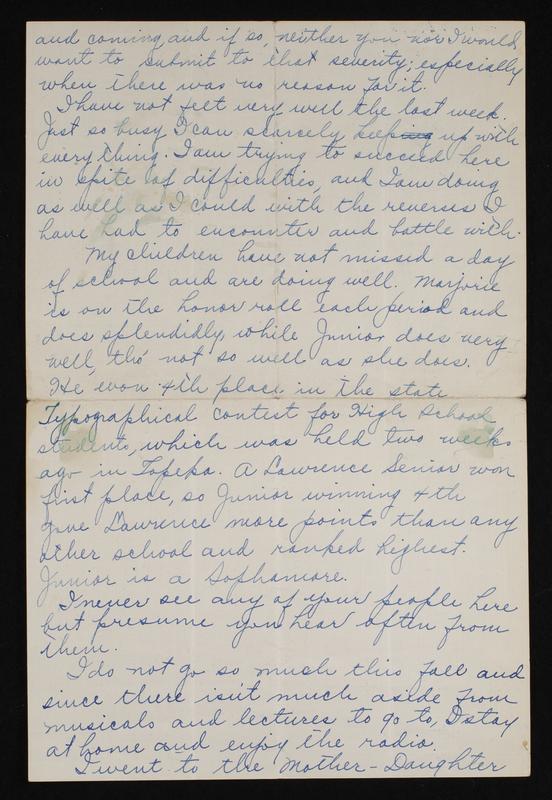 and coming and if so, neither you nor I would
want to submit to that severity; especially
when there was no reason for it.
I have not felt very well the last week.
Just so busy I can scarcely keep up with
every thing. I am trying to succeed here
in spite of difficulties, and I am doing
as well as I could with the reverses I
have had to encounter and battle with.
My children have not missed a day
of school and are doing well. Marjorie
is on the honor roll each period and
does splendidly, while Junior does very
well, tho' not so well as she does.
He won 4th place in the state
Typographical contest for High School
students, which was held two weeks
ago in Topeka. A Lawrence Senior won
first place, so Junior winning 4th
gave Lawrence more points than any
other school and ranked highest.
Junior is a Sophamore.
I never see any of your people here
but presume you hear often from
them.
I do not go so much this fall and
since there isn't much aside from
musicals and lectures to go to, I stay
at home and enjoy the radio.
I went to the Mother-Daughter